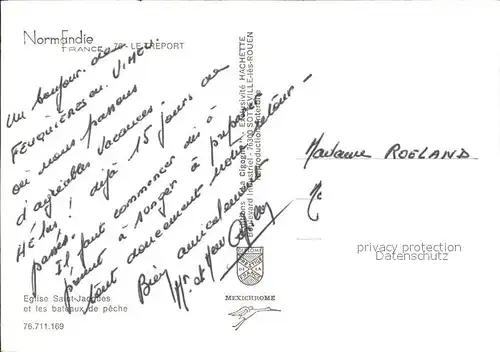 Normandie
FRANCE
76 - LE TRÉPORT
Un bonjour de
FEUQUIÈRES en VIMEU.
où nous passons
d'agréables vacances.
Hélas ! déjà 15 jours de
passés.
Il faut commencer dès à
présent à songer à préparer
tout doucement notre retour -
Bien amicalement
Mr. et Mme
Madame ROELAND
Exclusivité HACHETTE
Boulevard Industriel - 76300 SOTTEVILLE-lès-ROUEN
Reproduction interdite
MEXICHROME
privacy protection
Datenschutz
Eglise Saint-Jacques
et les bateaux de pêche
76.711.169